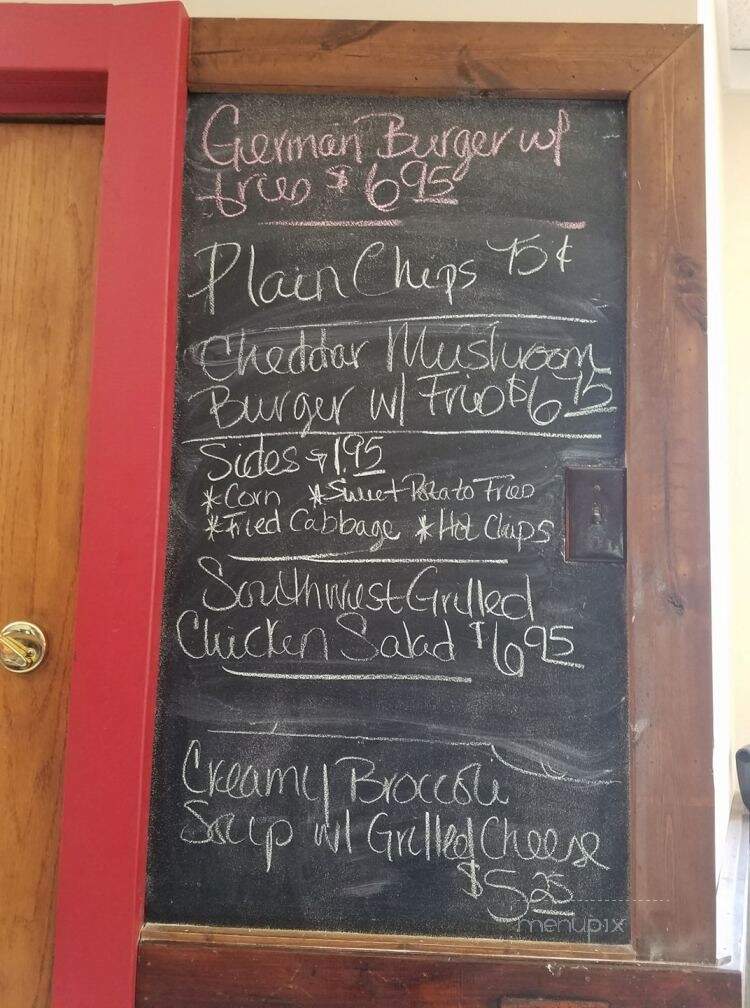 German Burger w/
fries $6.95
Plain Chips 75¢
Cheddar Mushroom
Burger w/ Fries $6.75
Sides 1.95
*Corn *Sweet Potato Fries
*Fried Cabbage *Hot Chips
Southwest Grilled
Chicken Salad $6.95
Creamy Broccoli
Soup w/ Grilled Cheese
$5.25
menupix